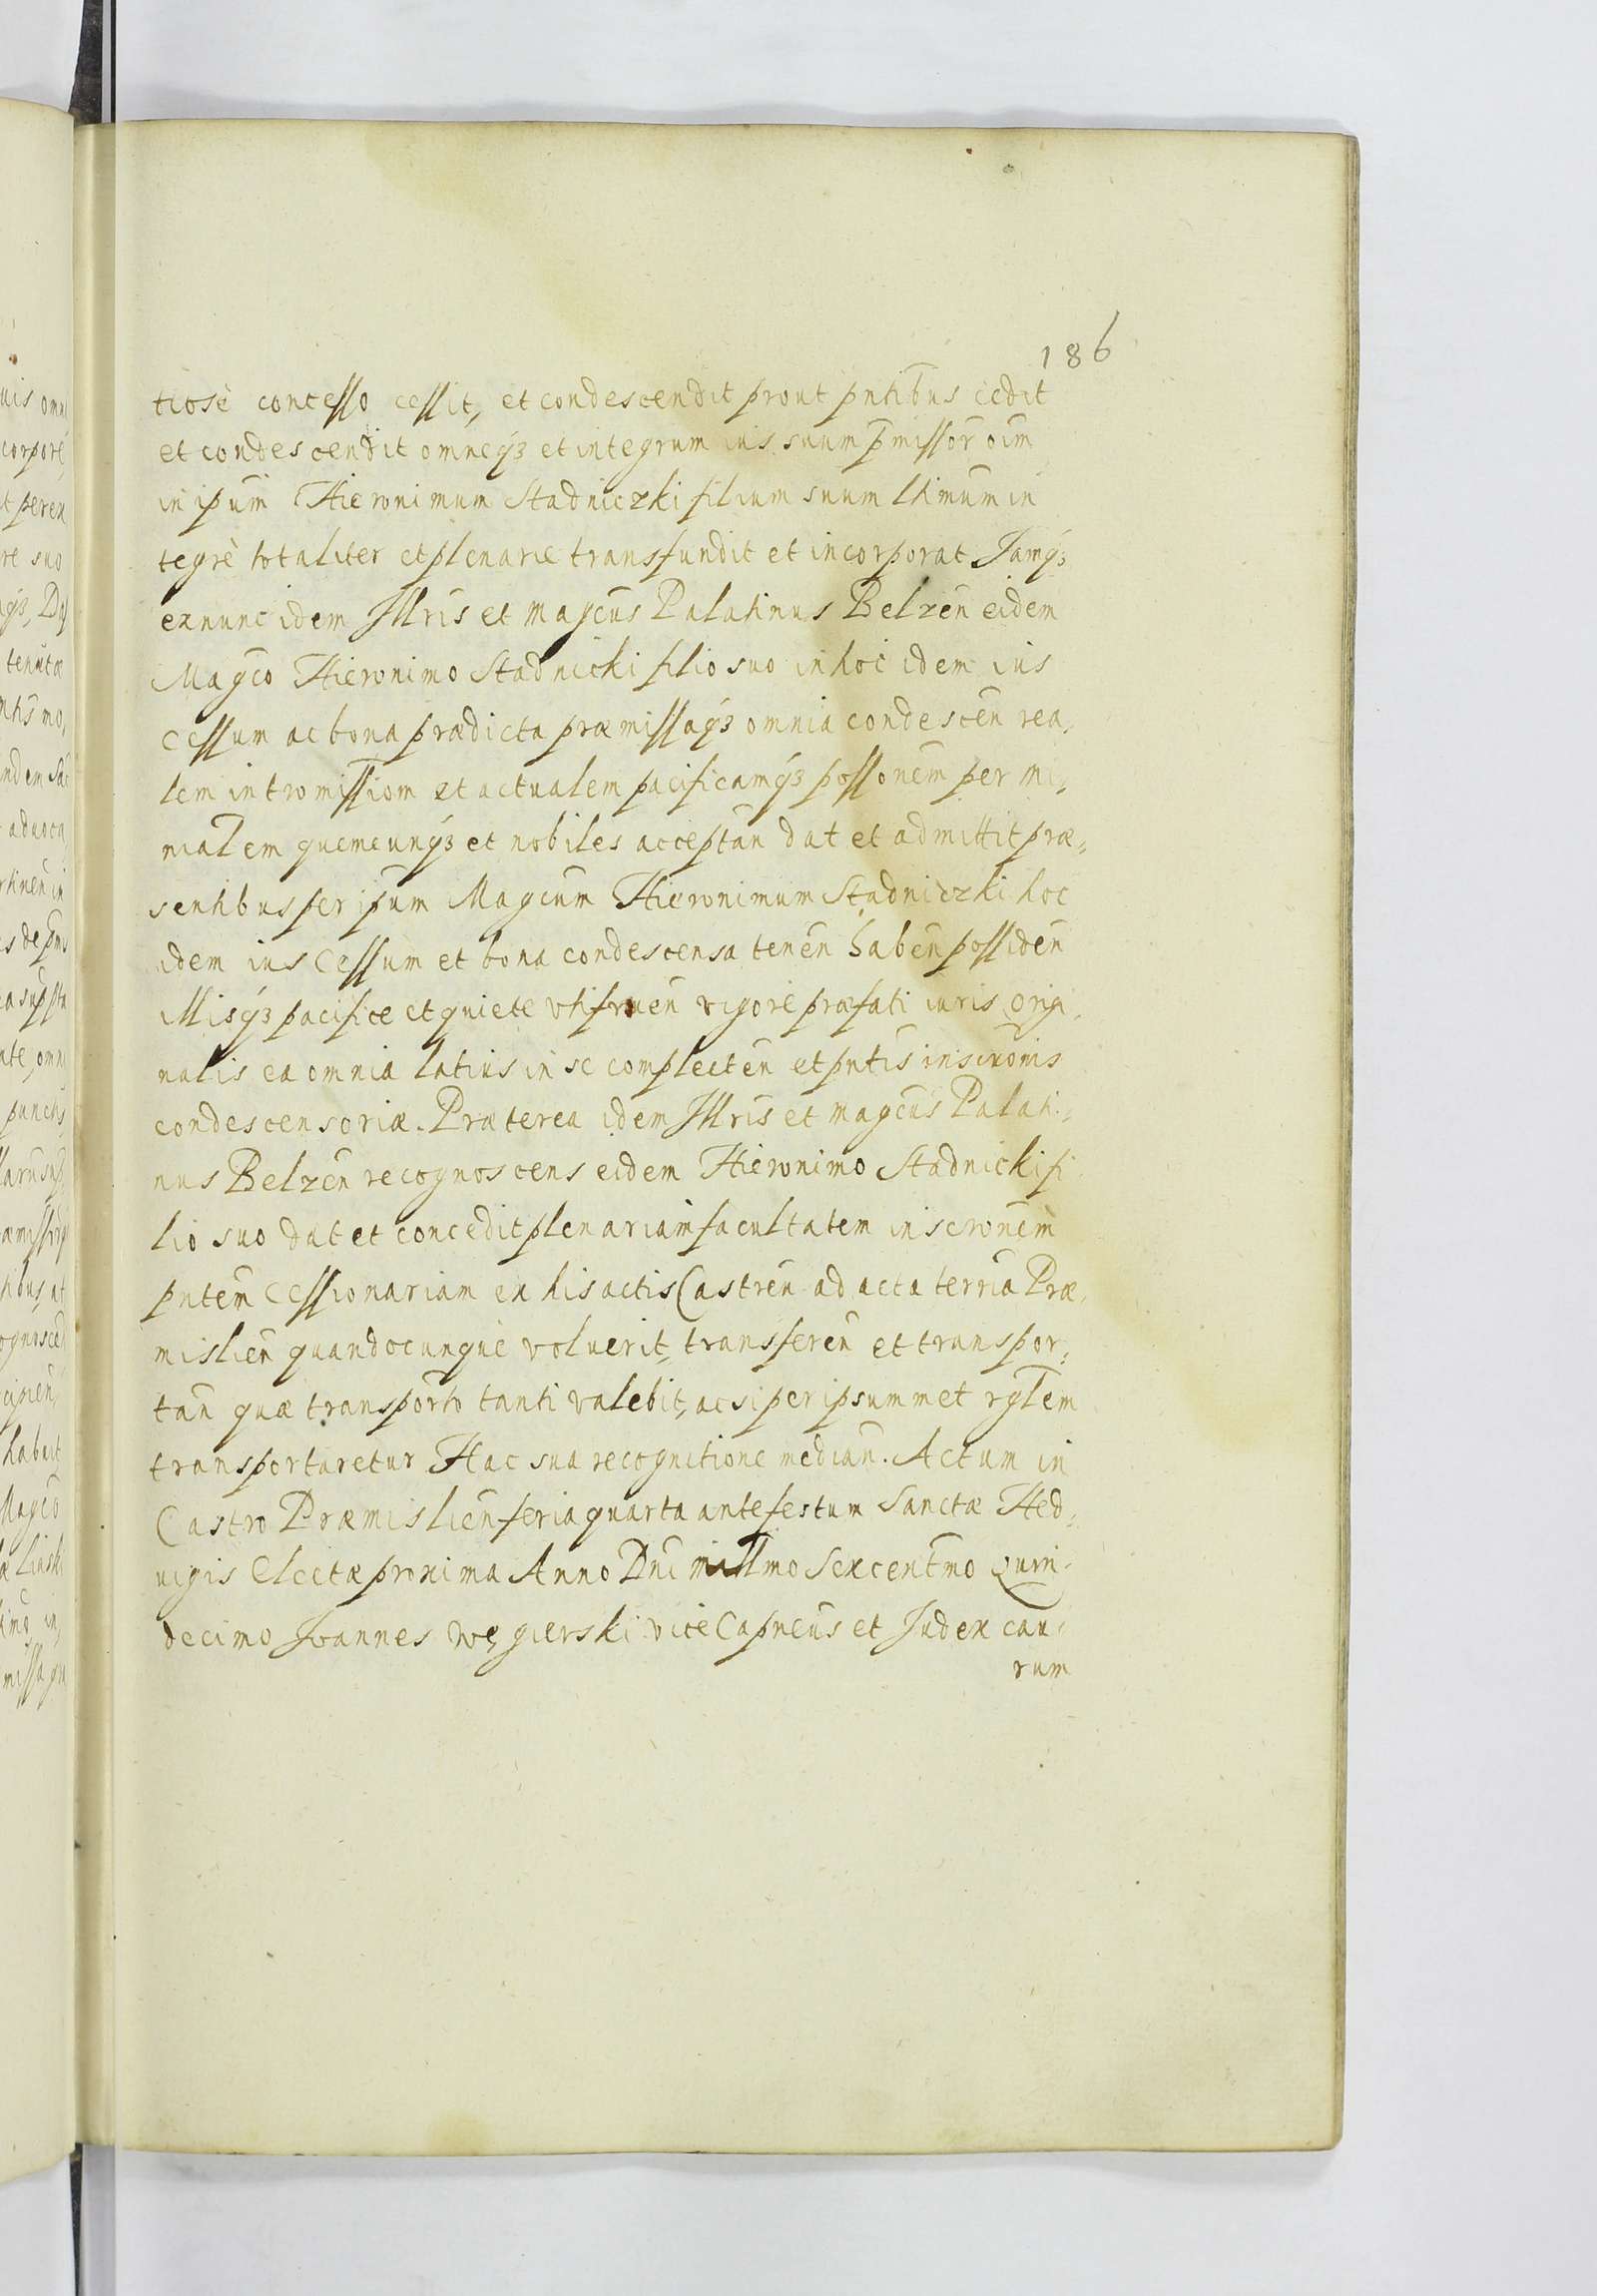 186
tiosè concesso cessit, et condescendit prout pntibus cedit
et condescendit omneqz et integrum ius suum pmissor oim
in ipum Hieronimum Stadniczki filium suum lthimum in
tegrè totaliter et plenarie transfundit et incorporat Jamqz
exnunc idem Jllris et magcus Palatinus Belzen eidem
Magco Hieronimo Stadnicki filio suo in hoc idem ius
cessum ac bona prædicta præmissaqz omnia condescen rea,
lem intromissiom et actualem pacificamqz possonem per mi,
nialem quemcunqz et nobiles acceptan dat et admittit præ,
sentibus per ipsum Magcum Hieronimum Stadniczki hoc
idem ius Cessum et bona condescensa tenen haben possiden
illisqz pacifice et quiete vtifruen vigore præfati iuris origi,
nalis ea omnia latius in se complecten et pntis inscronis
condescensoriæ. Præterea idem Jllris et magcus Palati,
nus Belzen recognoscens eidem Hieronimo Stadnicki fi
lio suo dat et concedit plenariam facultatem inscronem
pntem Cessionariam ex his actis Castren ad acta terria Præ,
mislien quandocunque voluerit, transferen et transpor,
tan quæ transporto tanti valebit, ac si per ipsummet rglem
transportaretur Hac sua recognitione median. Actum in
Castro Præmislien feria quarta ante festum Sanctæ Hed,
uigis Electæ proxima Anno Dni millmo Sexcentmo Quin,
decimo Joannes Węgierski vice Capneus et Judex cau,
rum